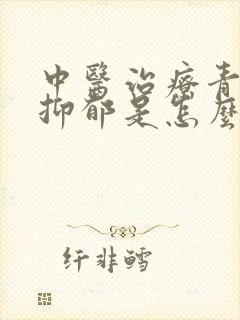 中醫治療青
抑郁是怎麼
纤非鳕